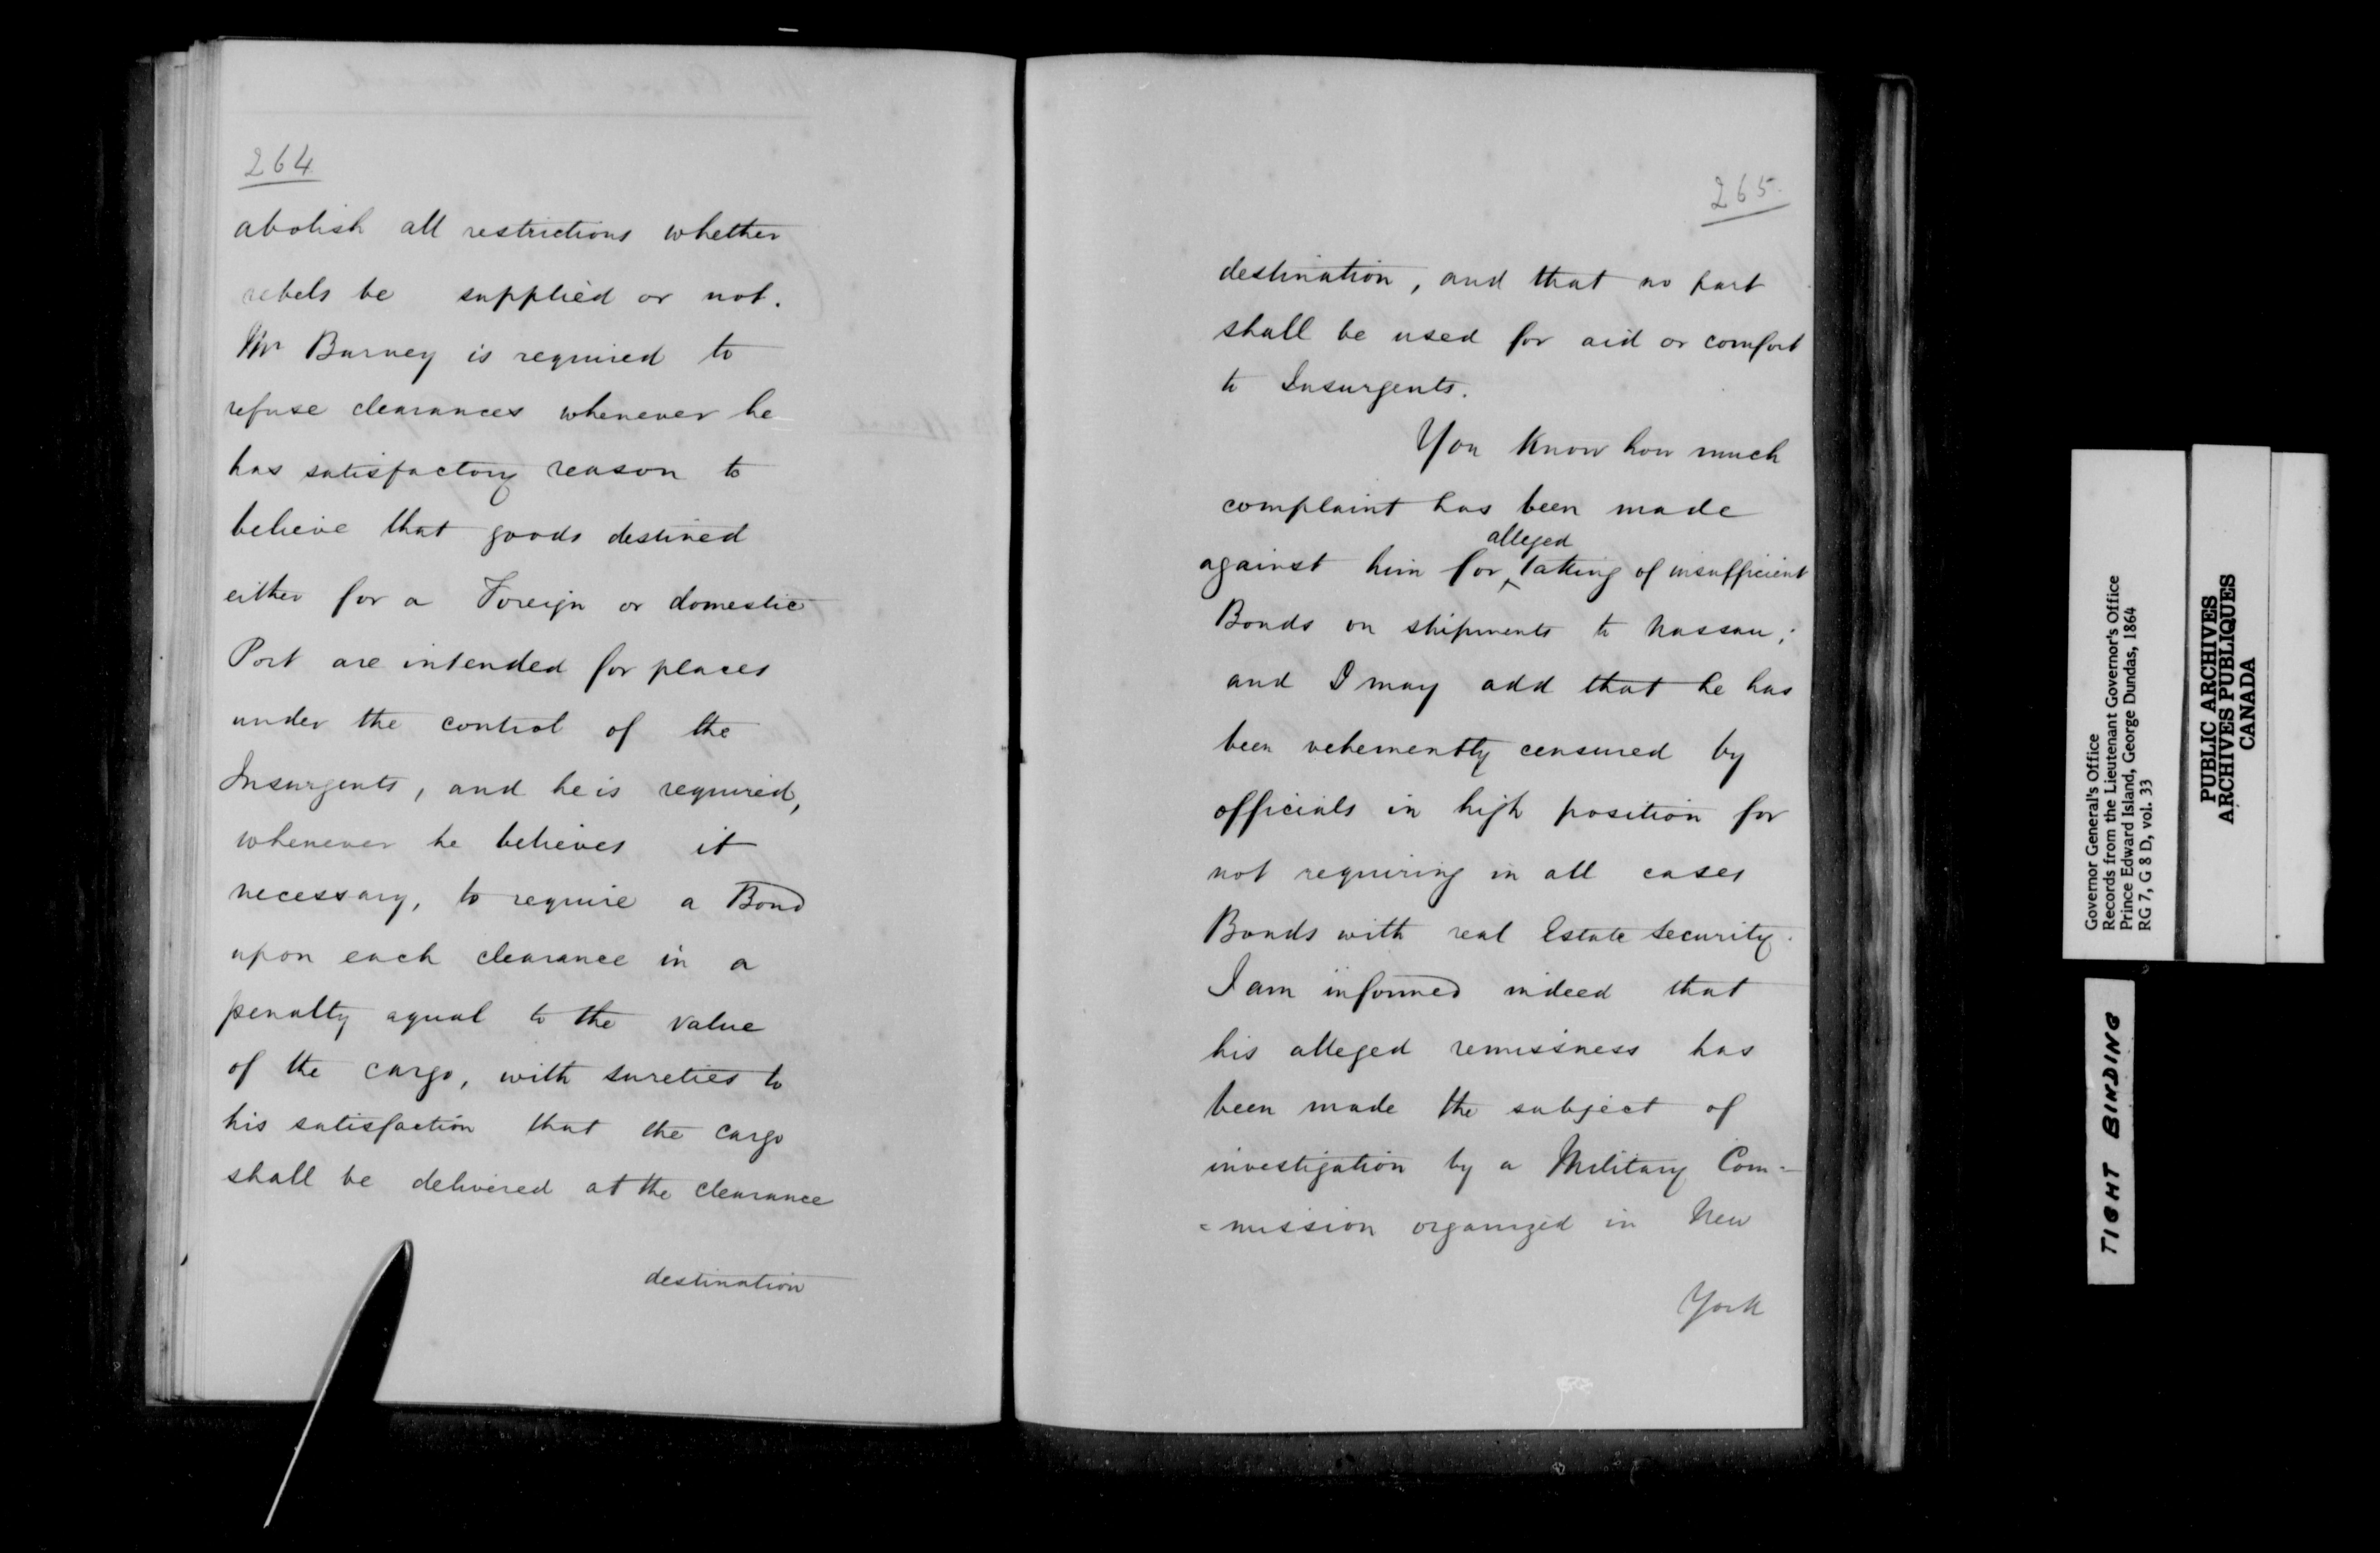 264
abolish all restrictions whether
rebels be supplied or not.
Mr Barney is required to
refuse clearances whenever he
has satisfactory reason to
believe that goods destined
either for a Foreign or domestic
Port are intended for places
under the control of the
Insurgents, and he is required,
whenever he believes it
necessary, to require a Bond
upon each clearance in a
penalty aqual to the value
of the cargo, with sureties to
his satisfaction that the cargo
shall be delivered at the clearance
destination
265.
destination, and that no part
shall be used for aid or comfort
to Insurgents.
You know how much
complaint has been made
alleged
against him for taking of insufficient
Bonds on shipments to Nassau;
and I may add that he has
been vehemently censured by
officials in high position for
not requiring in all cases
Bonds with real Estate security.
I am informed indeed that
his alleged remissness has
been made the subject of
investigation by a Military Com-
=mission organized in New
York
Governor General's Office
Records from the Lieutenant Governor's Office
Prince Edward Island, George Dundas, 1864
RG 7, G 8 D, vol. 33
PUBLIC ARCHIVES
ARCHIVES PUBLIQUES
CANADA
TIGHT BINDING